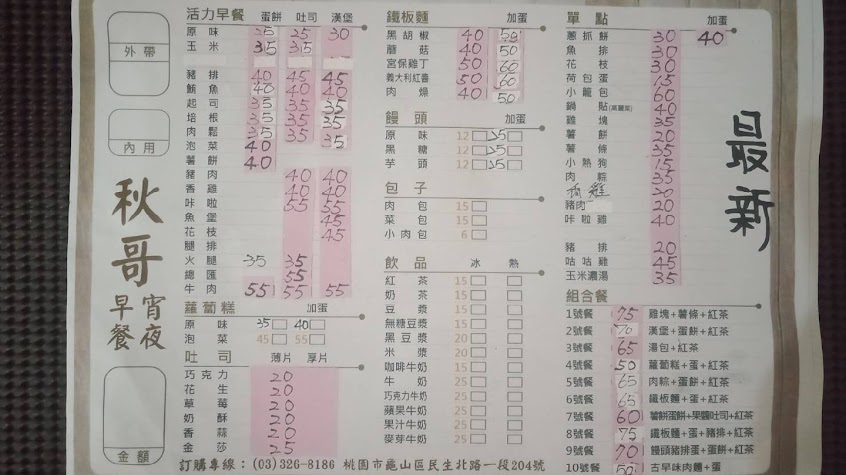 外帶
內用
秋哥
早餐 宵夜
金額
活力早餐 蛋餅 吐司 漢堡
原味 25 25 30
玉米 35 35
豬排 40 45 45
鮪魚 40 40 40
起司 35 35 35
培根 35 35 35
肉鬆 35 35 35
泡菜 40
薯餅 40
豬肉 40 40
香雞 40 40
咔啦 55 55
魚堡 45
花枝 45
腿排
火腿 35 35
總匯 55
牛肉 55 55 55
蘿蔔糕 加蛋
原味 35 40
泡菜 45 55
吐司 薄片 厚片
巧克力 20
花生 20
草莓 20
奶酥 20
香蒜 20
金莎 25
鐵板麵 加蛋
黑胡椒 40 50
蘑菇 40 50
宮保雞丁 50 60
義大利紅醬 50 60
肉燥 40 50
饅頭 加蛋
原味 12 25
黑糖 12 25
芋頭 12 25
包子
肉包 15
菜包 15
小肉包 6
飲品 冰 熱
紅茶 15
奶茶 15
豆漿 15
無糖豆漿 15
黑豆漿 20
米漿 20
咖啡牛奶 15
牛奶 25
巧克力牛奶 25
蘋果牛奶 25
果汁牛奶 25
麥芽牛奶 25
單點 加蛋
蔥抓餅 30 40
魚排 30
花枝 30
荷包蛋 15
小籠包 60
鍋貼(高麗菜) 40
雞塊 35
薯餅 20
薯條 35
小熱狗 15
肉粽 35
香雞 20
豬肉 20
咔啦雞 40
豬排 20
咕咕雞 45
玉米濃湯 35
組合餐
1號餐 75 雞塊+薯條+紅茶
2號餐 70 漢堡+蛋餅+紅茶
3號餐 65 湯包+紅茶
4號餐 50 蘿蔔糕+蛋+紅茶
5號餐 65 肉粽+蛋餅+紅茶
6號餐 65 鐵板麵+蛋+紅茶
7號餐 60 薯餅蛋餅+果醬吐司+紅茶
8號餐 75 鐵板麵+蛋+豬排+紅茶
9號餐 70 饅頭豬排蛋+蛋餅+紅茶
10號餐 50 古早味肉麵+蛋
最新
訂購專線:(03)326-8186 桃園市龜山區民生北路一段204號